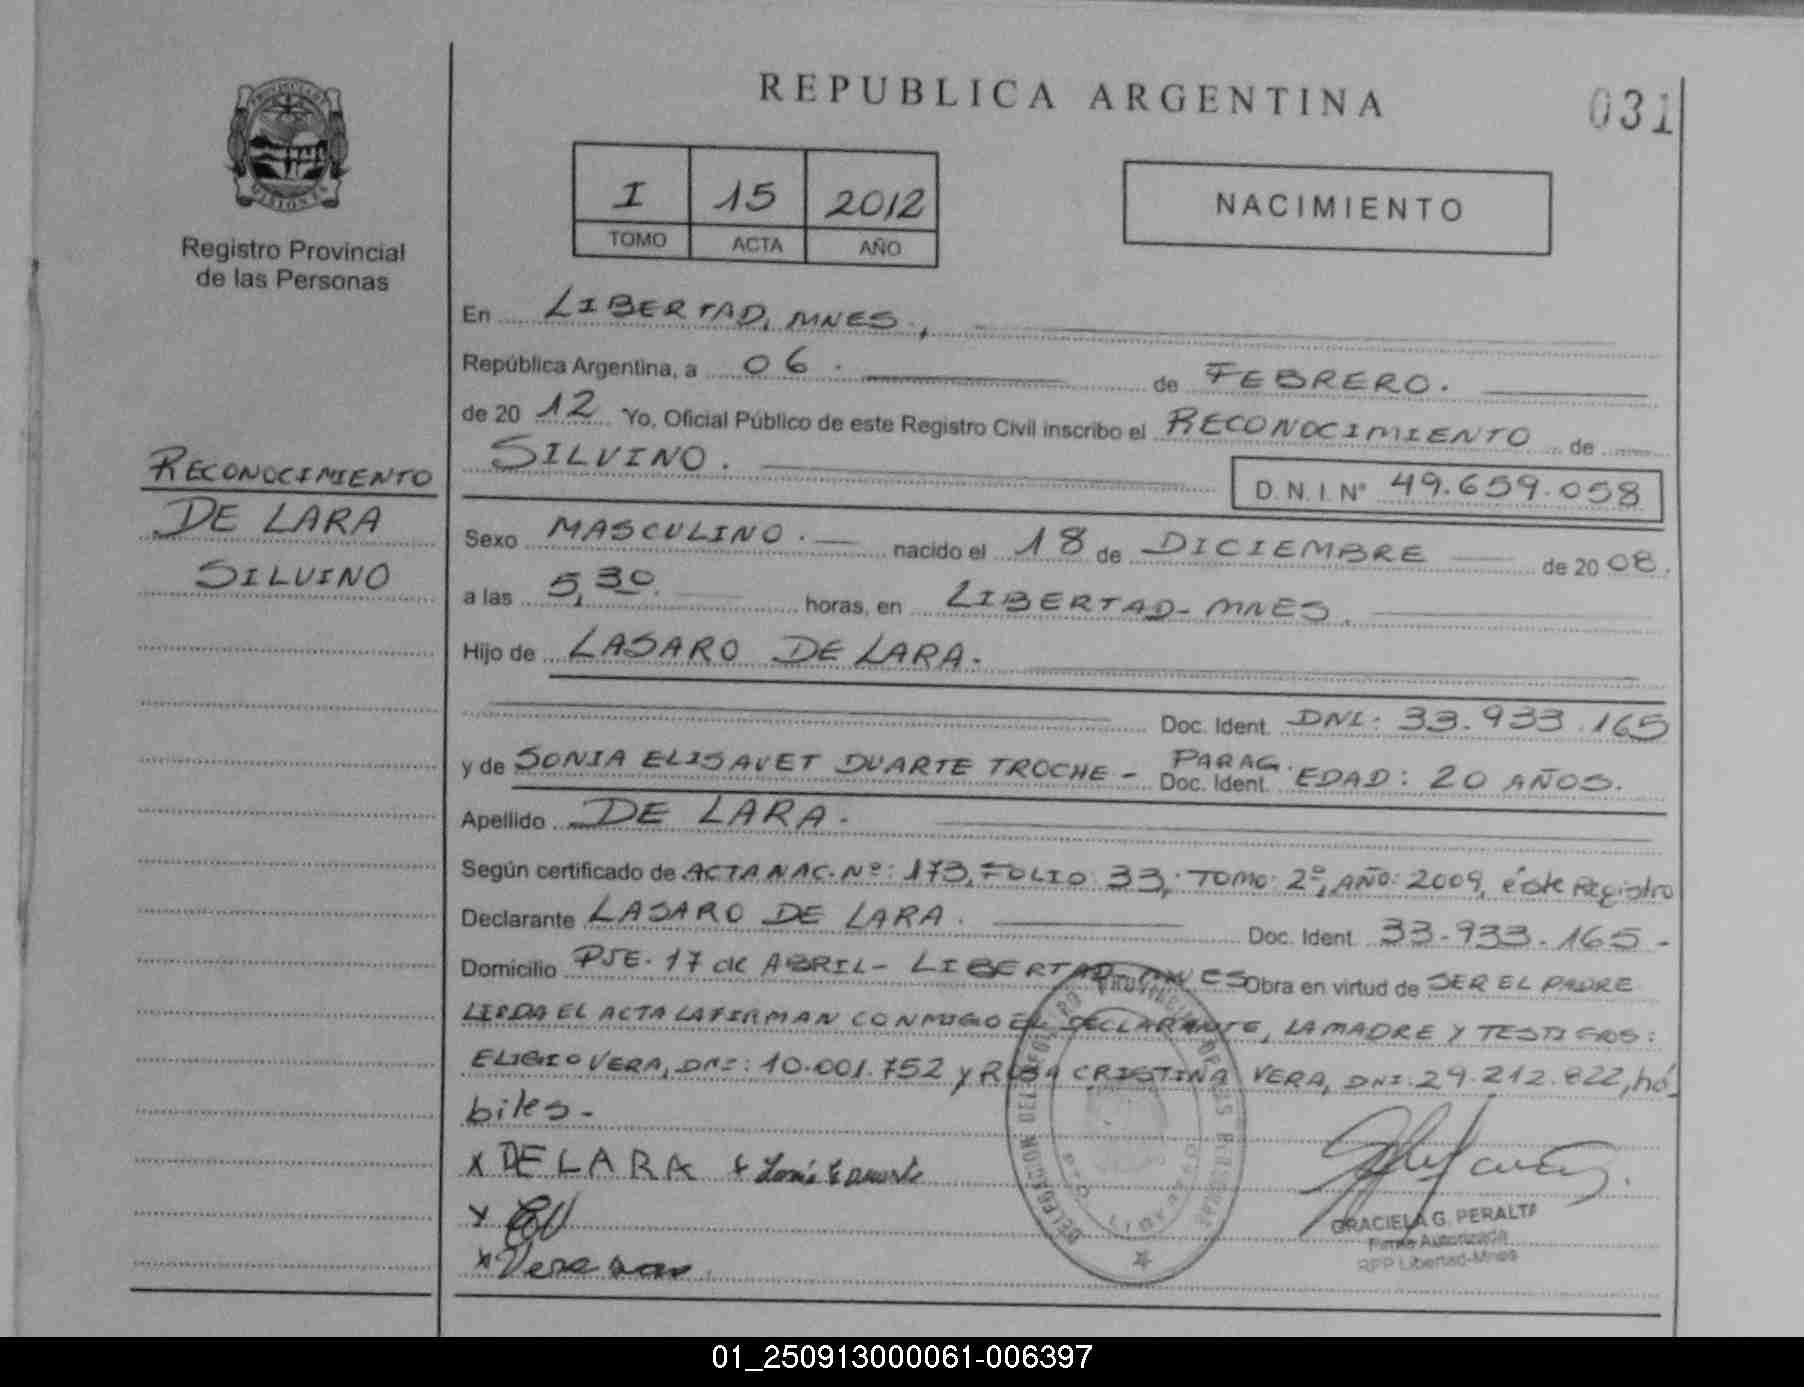 REPUBLICA ARGENTINA
031
PROVINCIA DE MISIONES
Registro Provincial
de las Personas
I 15 2012
TOMO ACTA AÑO
NACIMIENTO
En LIBERTAD, MNES.,
República Argentina, a 06. de FEBRERO.
de 20 12 Yo, Oficial Público de este Registro Civil inscribo el RECONOCIMIENTO de
SILVINO. D.N.I. Nº 49.659.058
RECONOCIMIENTO
DE LARA
SILVINO
Sexo MASCULINO. nacido el 18 de DICIEMBRE de 20 08.
a las 5,30. horas, en LIBERTAD-MNES.
Hijo de LASARO DE LARA.
Doc. Ident. DNI: 33.933.165
y de SONIA ELISAVET DUARTE TROCHE - PARAG. Doc. Ident. EDAD: 20 AÑOS.
Apellido DE LARA.
Según certificado de ACTA NAC. Nº: 173, FOLIO: 33, TOMO: 2º, AÑO: 2009, éste Registro
Declarante LASARO DE LARA. Doc. Ident. 33.933.165-
Domicilio PJE. 17 de ABRIL- LIBERTAD, MNES Obra en virtud de SER EL PADRE
LEIDA EL ACTA LA FIRMAN CONMIGO EL DECLARANTE, LA MADRE Y TESTIGOS:
ELIGIO VERA, DNI: 10.001.752 y ROSA CRISTINA VERA, DNI: 29.212.822, há
biles-
x DE LARA x
x EV
x Vera
GRACIELA G. PERALTA
Firma Autorizada
RPP Libertad-Mnes
01_250913000061-006397